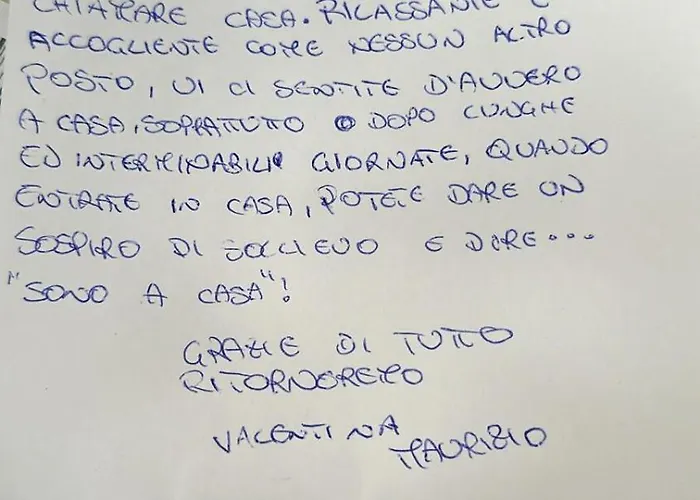 CHIAMARE CASA. RILASSANTE E
ACCOGLIENTE COME NESSUN ALTRO
POSTO, VI CI SENTITE D'AVVERO
A CASA, SOPRATTUTTO DOPO LUNGHE
ED INTERMINABILI GIORNATE, QUANDO
ENTRATE IN CASA, POTETE DARE UN
SOSPIRO DI SOLLIEVO E DIRE...
"SONO A CASA"!
GRAZIE DI TUTTO
RITORNEREMO
VALENTINA
MAURIZIO